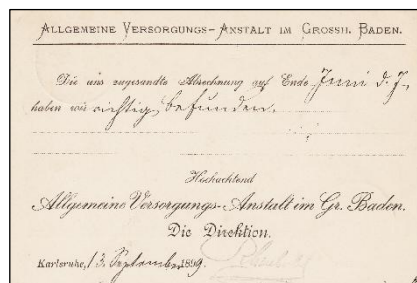 ALLGEMEINE VERSORGUNGS-ANSTALT IM GROSSH. BADEN.
Die uns zugesandte Abrechnung auf Ende Juni d. J.
haben wir richtig befunden.
Hochachtend
Allgemeine Versorgungs-Anstalt im Gr. Baden.
Die Direktion.
Karlsruhe, 13. September 1899.